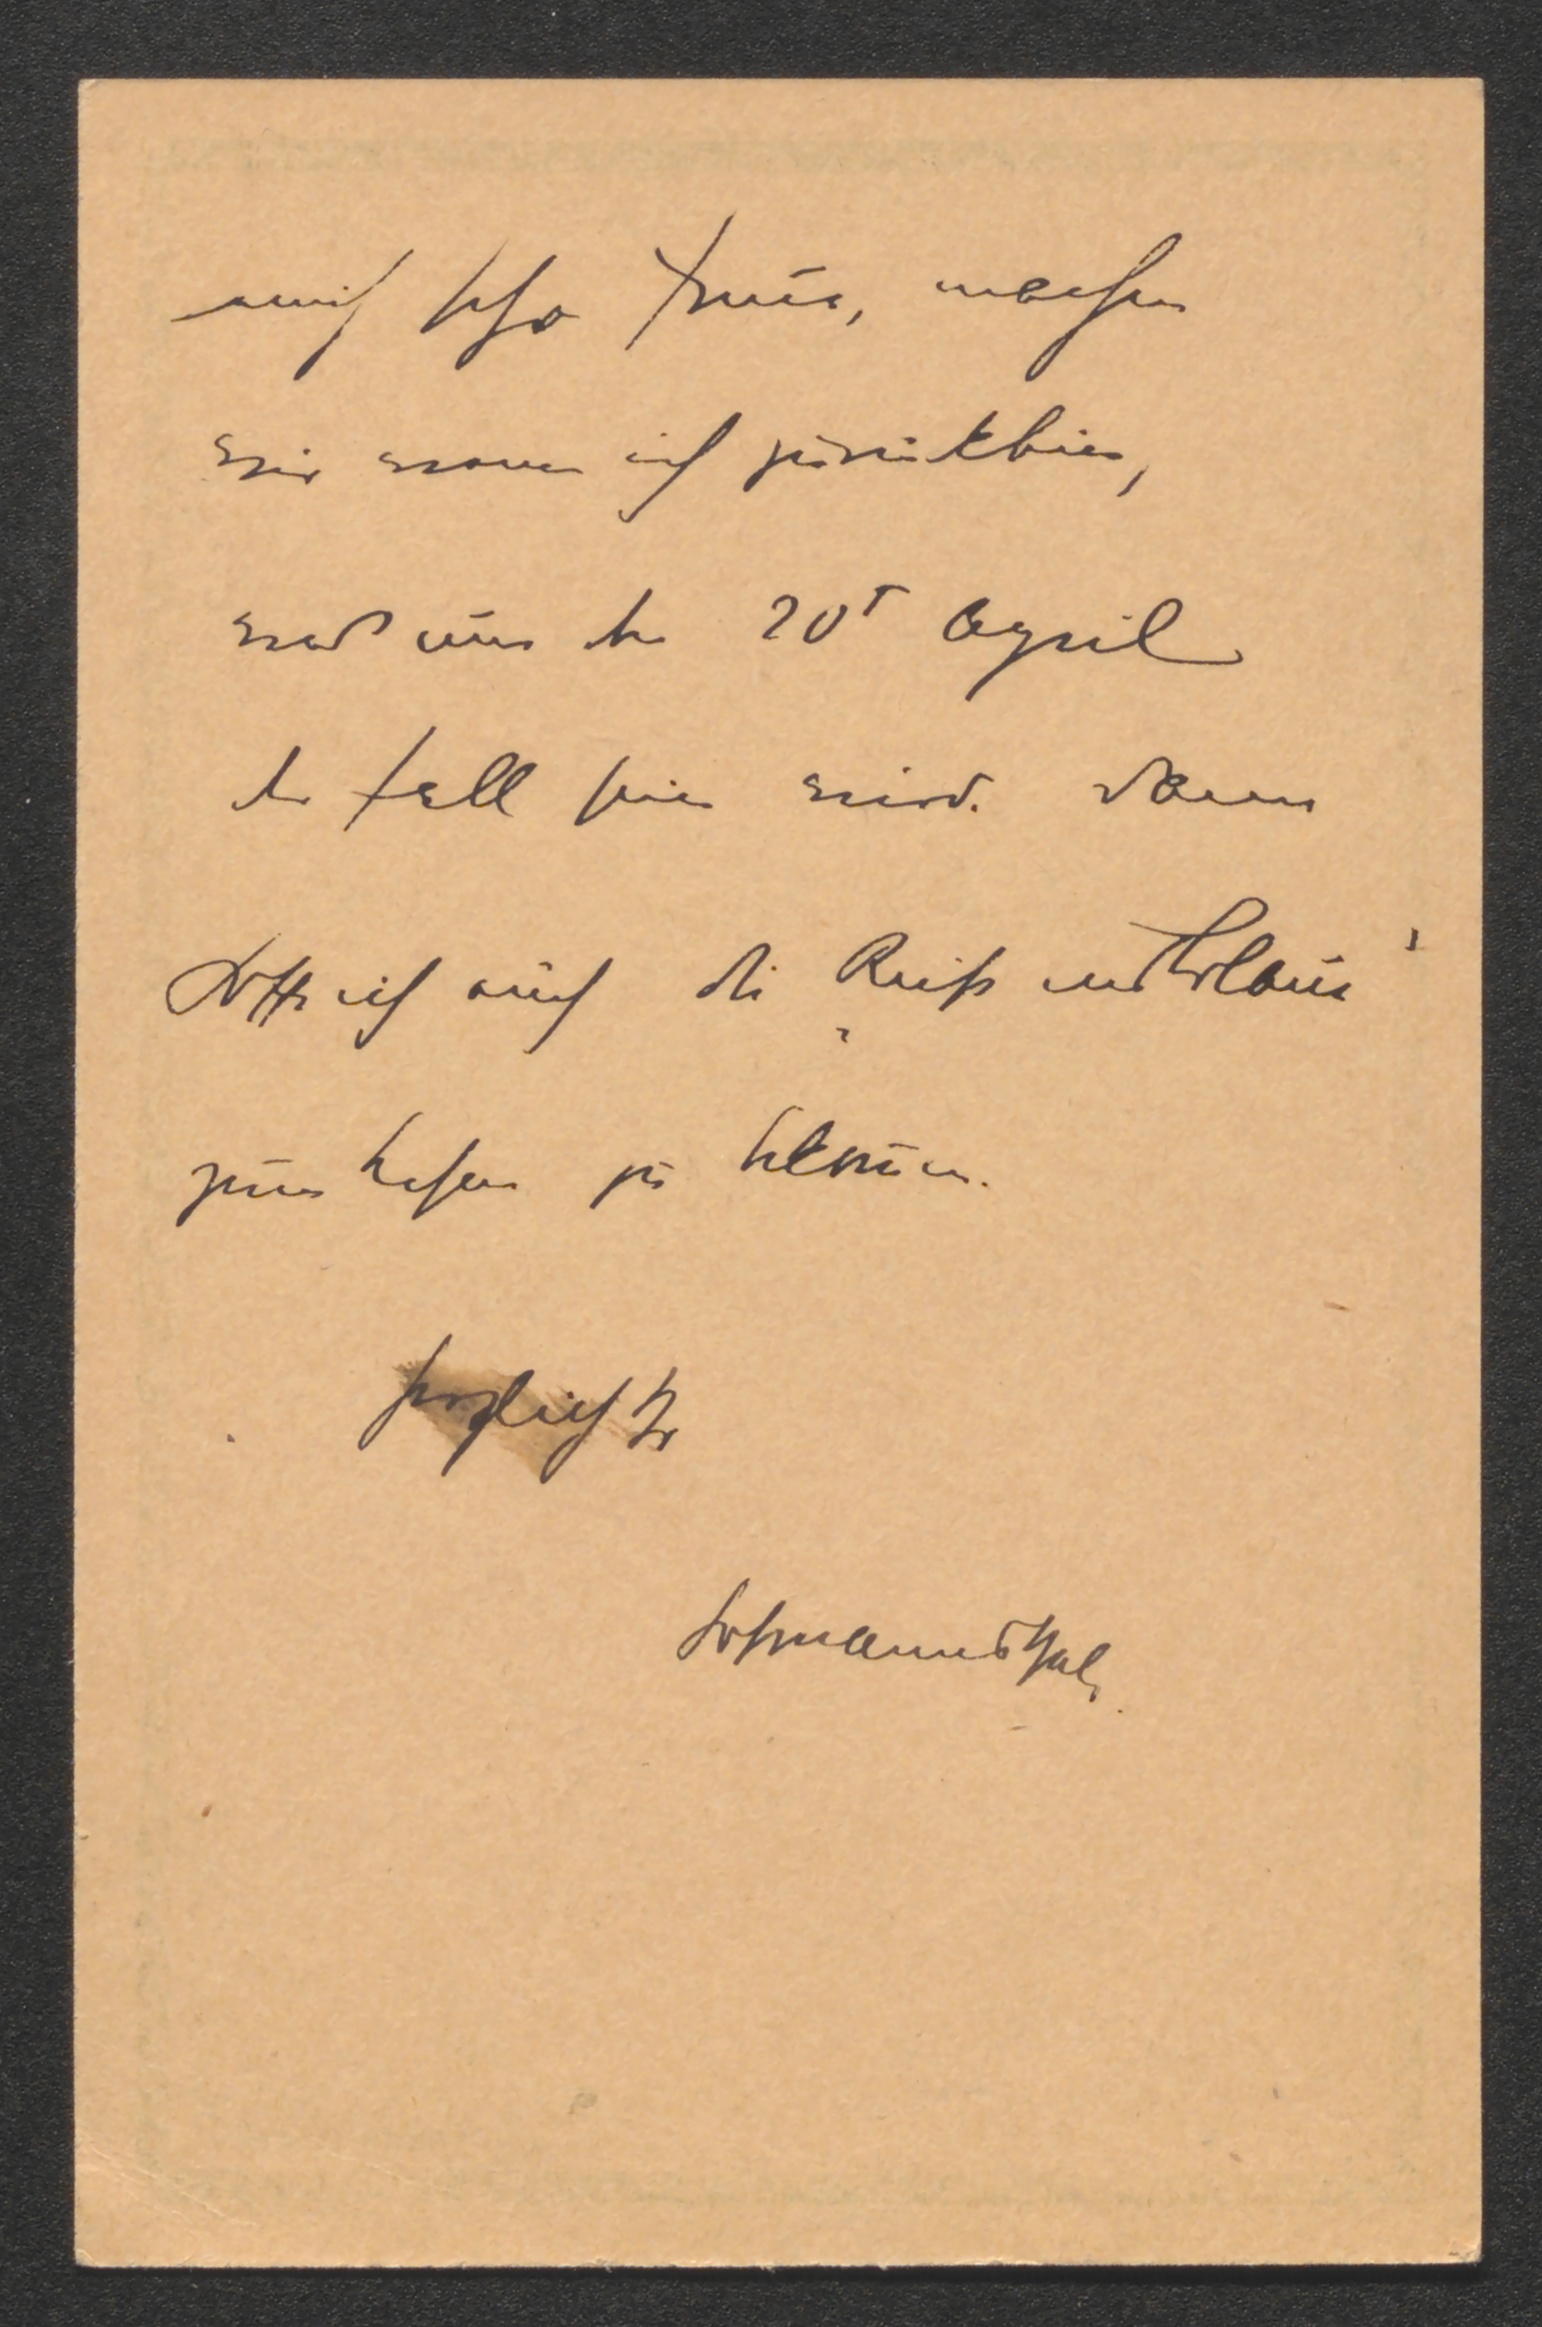 mich sehr freue, machen
wir wenn ich zurückbin,
was um den 20t April
der Fall sein wird. Dann
hoffe ich auch die „Reise nach Krakau“
zum Lesen zu bekommen.
herzlich Ihr
Hofmannsthal